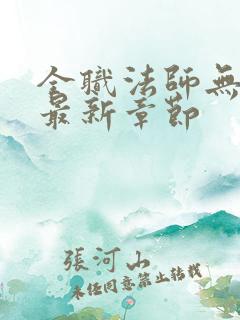 全職法師無
最新章節
張河山
未經同意禁止轉載